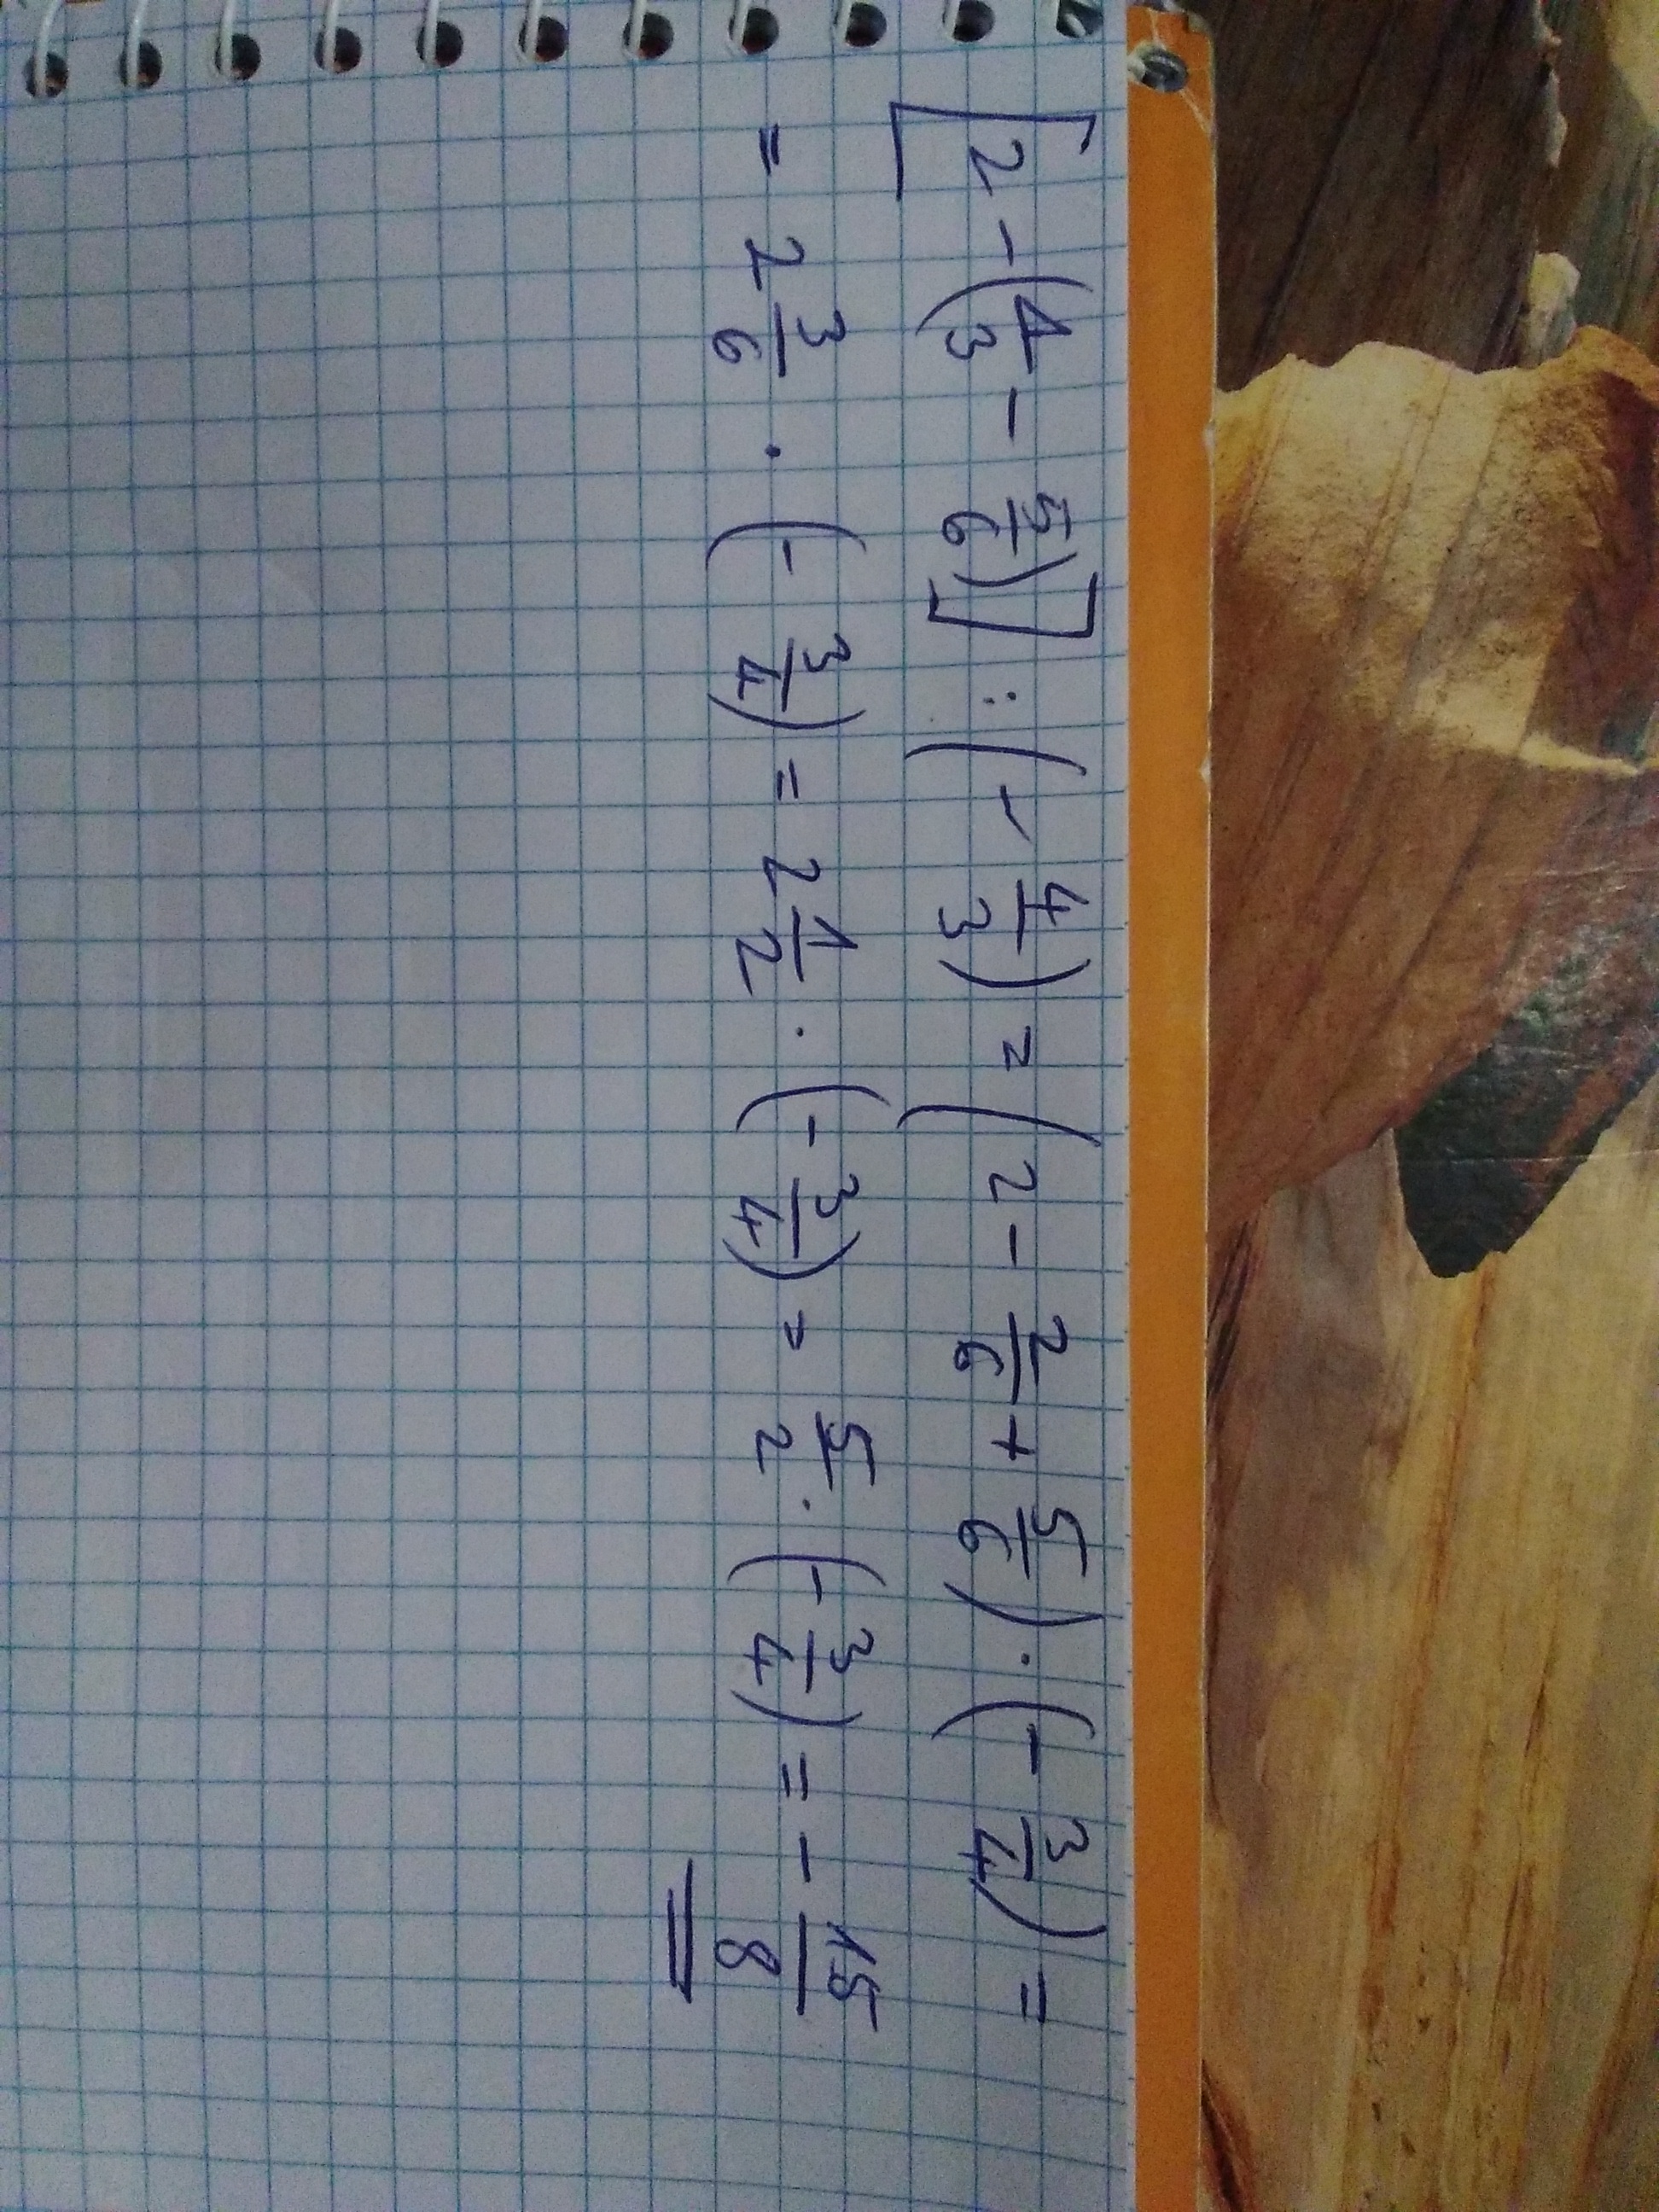 [2 - (1/3 - 5/6)] : (- 4/3) = (2 - 2/6 + 5/6) · (- 3/4) =
= 2 3/6 · (- 3/4) = 2 1/2 · (- 3/4) = 5/2 · (- 3/4) = - 15/8